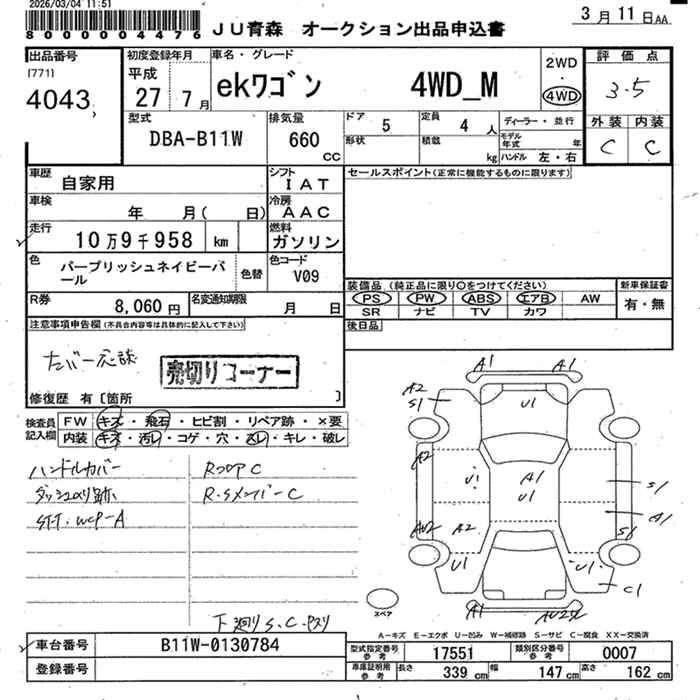 2026/03/04 11:51
800004476
JU青森 オークション出品申込書
3月11日AA
出品番号
[771]
4043
初度登録年月
平成
27 7月
車名・グレード
ekワゴン 4WD_M
2WD
・
4WD
評価点
3.5
外装 内装
C C
型式
DBA-B11W
排気量
660
CC
ドア 5
形状
定員 4人
積載 kg
ディーラー・並行
モデル年式 年
ハンドル 左・右
車歴 自家用
シフト IAT
セールスポイント(正常に機能するものに限ります)
車検 年 月( 日)
冷房 AAC
走行 10万9千958 km
燃料 ガソリン
色 パープリッシュネイビーパール
色替
色コード V09
装備品 (純正品に限り○をつけてください)
PS PW ABS エアB AW
SR ナビ TV カワ
新車保証書
有・無
R券 8,060円
名変通知期限 月 日
後日品
注意事項申告欄(不具合内容等は具体的に記入して下さい)
売切りコーナー
修復歴 有〔箇所 〕
検査員記入欄
FW キズ・飛石・ヒビ割・リペア跡・×要
内装 キズ・汚レ・コゲ・穴・スレ・キレ・破レ
ハンドルカバー
RフロアC
R.SメンバーC
A1 A1
A2
S1
U1
A2
U1
A1
U1
S1
A1
A2
S1
U1
U1
C1
A1
スペア
下廻りS.C
A-キズ E-エクボ U-凹み W-補修跡 S-サビ C-腐食 XX-交換済
車台番号 B11W-0130784
登録番号
型式指定番号 参考 17551
類別区分番号 参考 0007
車庫証明用 参考 長さ 339cm 幅 147cm 高さ 162cm